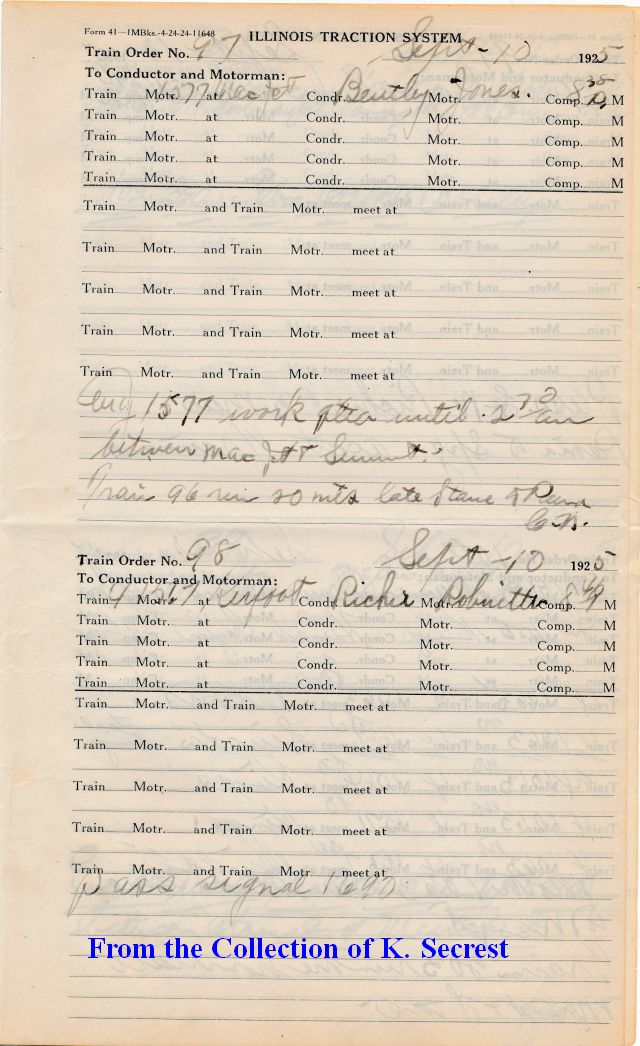 Form 41—1MBks.-4-24-24-11648
ILLINOIS TRACTION SYSTEM
Train Order No. 97 Sept - 10 1925
To Conductor and Motorman:
Train Motr. 1577 at Mac Jct Condr. Bentley Motr. Jones. Comp. 8 35 M
Train Motr. at Condr. Motr. Comp. M
Train Motr. at Condr. Motr. Comp. M
Train Motr. at Condr. Motr. Comp. M
Train Motr. at Condr. Motr. Comp. M
Train Motr. and Train Motr. meet at
Train Motr. and Train Motr. meet at
Train Motr. and Train Motr. meet at
Train Motr. and Train Motr. meet at
Train Motr. and Train Motr. meet at
Eng 1577 work until 2 30 am
between Mac Jct
Train 96 run 20 mts late
Train Order No. 98 Sept - 10 1925
To Conductor and Motorman:
Train 4 Motr. at Kerfoot Condr. Richie Motr. Robnette Comp. 8 49 M
Train Motr. at Condr. Motr. Comp. M
Train Motr. at Condr. Motr. Comp. M
Train Motr. at Condr. Motr. Comp. M
Train Motr. at Condr. Motr. Comp. M
Train Motr. and Train Motr. meet at
Train Motr. and Train Motr. meet at
Train Motr. and Train Motr. meet at
Train Motr. and Train Motr. meet at
Train Motr. and Train Motr. meet at
pass signal 1690
From the Collection of K. Secrest